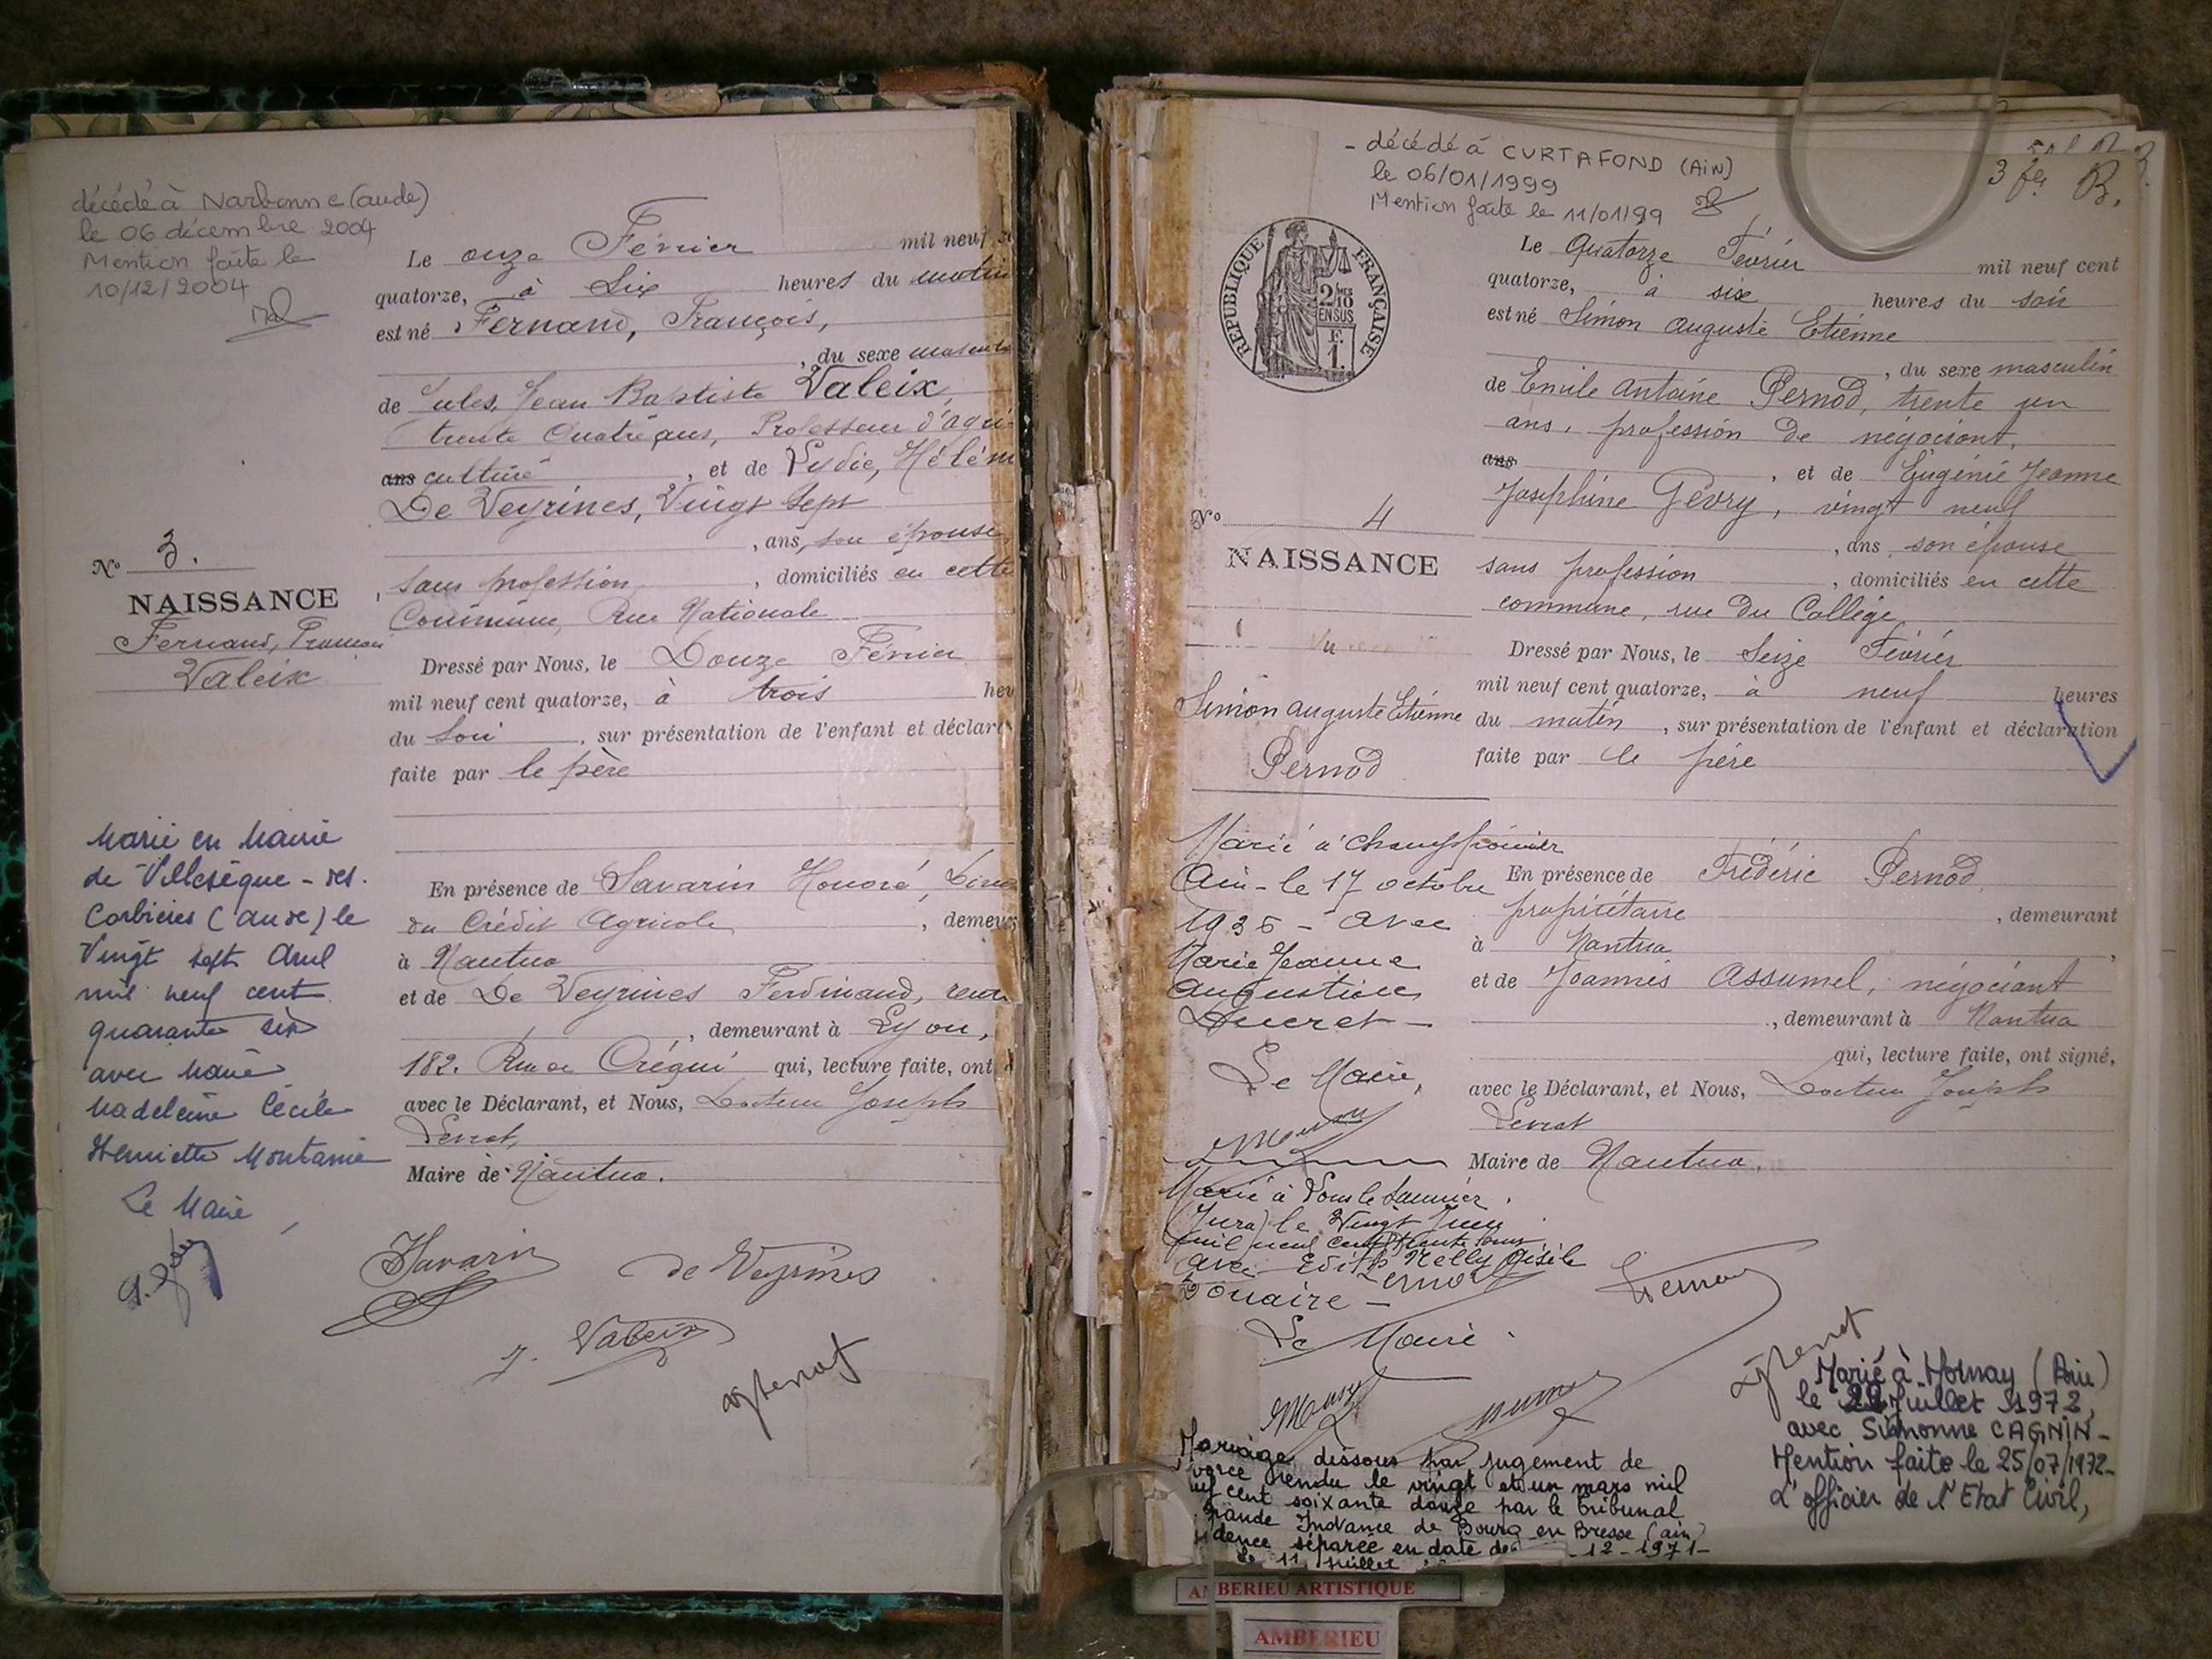 décédé à Narbonne (aude)
le 06 décembre 2004
Mention faite le
10/12/2004
Le onze Février mil neuf
quatorze, à Six heures du matin
est né Fernand, François,
, du sexe
de Jules, Jean Baptiste Valeix,
trente Quatre ans, Professeur d'agri-
ans culture , et de Lydie, Hélèn
De Veyrines, Vingt Sept
, ans, son épouse,
sans profession, , domiciliés en cette
Commune, Rue Nationale
Nº 3.
NAISSANCE
Fernand, François
Valeix
Dressé par Nous, le Douze Février
mil neuf cent quatorze, à trois heu
du soir , sur présentation de l'enfant et déclar
faite par le père
Marié en Mairie
de Villesèque-des-
Corbières (Aude) le
Vingt sept Avril
mil neuf cent
quarante six
avec Marie
Madeleine Cécile
Henriette Montanié
Le Maire,
En présence de Savarin Honoré,
du Crédit Agricole , demeu
à Nantua
et de De Veyrines Ferdinand,
, demeurant à Lyon,
182. Rue de Créqui qui, lecture faite, ont
avec le Déclarant, et Nous, Docteur Joseph
Levrat,
Maire de Nantua.
Savarin
de Veyrines
J. Valeix
- décédé à CURTAFOND (AiN)
le 06/01/1999
Mention faite le 11/01/99
3 fer B.
RÉPUBLIQUE FRANÇAISE
Le Quatorze Février mil neuf cent
quatorze, à six heures du soir
est né Simon Auguste Etienne
, du sexe masculin
de Emile Antoine Pernod, trente un
ans, profession de négociant,
ans , et de Eugénie Jeanne
Joséphine Gévry, vingt neuf
, ans, son épouse
sans profession , domiciliés en cette
commune, rue du Collège
Nº 4
NAISSANCE
Vu
Simon Auguste Etienne
Pernod
Dressé par Nous, le Seize Février
mil neuf cent quatorze, à neuf heures
du matin , sur présentation de l'enfant et déclaration
faite par le père
En présence de Frédéric Pernod,
propriétaire , demeurant
à Nantua ,
et de Joannès Assumel, négociant
, demeurant à Nantua
qui, lecture faite, ont signé,
avec le Déclarant, et Nous, Docteur Joseph
Levrat
Maire de Nantua.
Marié à
Ain - le 17 octobre
1936 - avec
Marie Jeanne
Augustine
Ducret -
Le Maire,
Marié à Lons le Saunier
(Jura) le Vingt Juin
mil neuf cent trente
avec Edith Nelly Gisèle
Douaire -
Le Maire
Mariage dissous par jugement de
vorce rendu le vingt et un mars mil
uf cent soixante douze par le Tribunal
Grande Instance de Bourg en Bresse (ain)
dence séparée en date de -12-1971-
Le 11 juillet
Marié à Mornay (Ain)
le 22 Juillet 1972,
avec Simonne CAGNIN-
Mention faite le 25/07/1972-
L'officier de l'Etat Civil,
AMBERIEU ARTISTIQUE
AMBERIEU